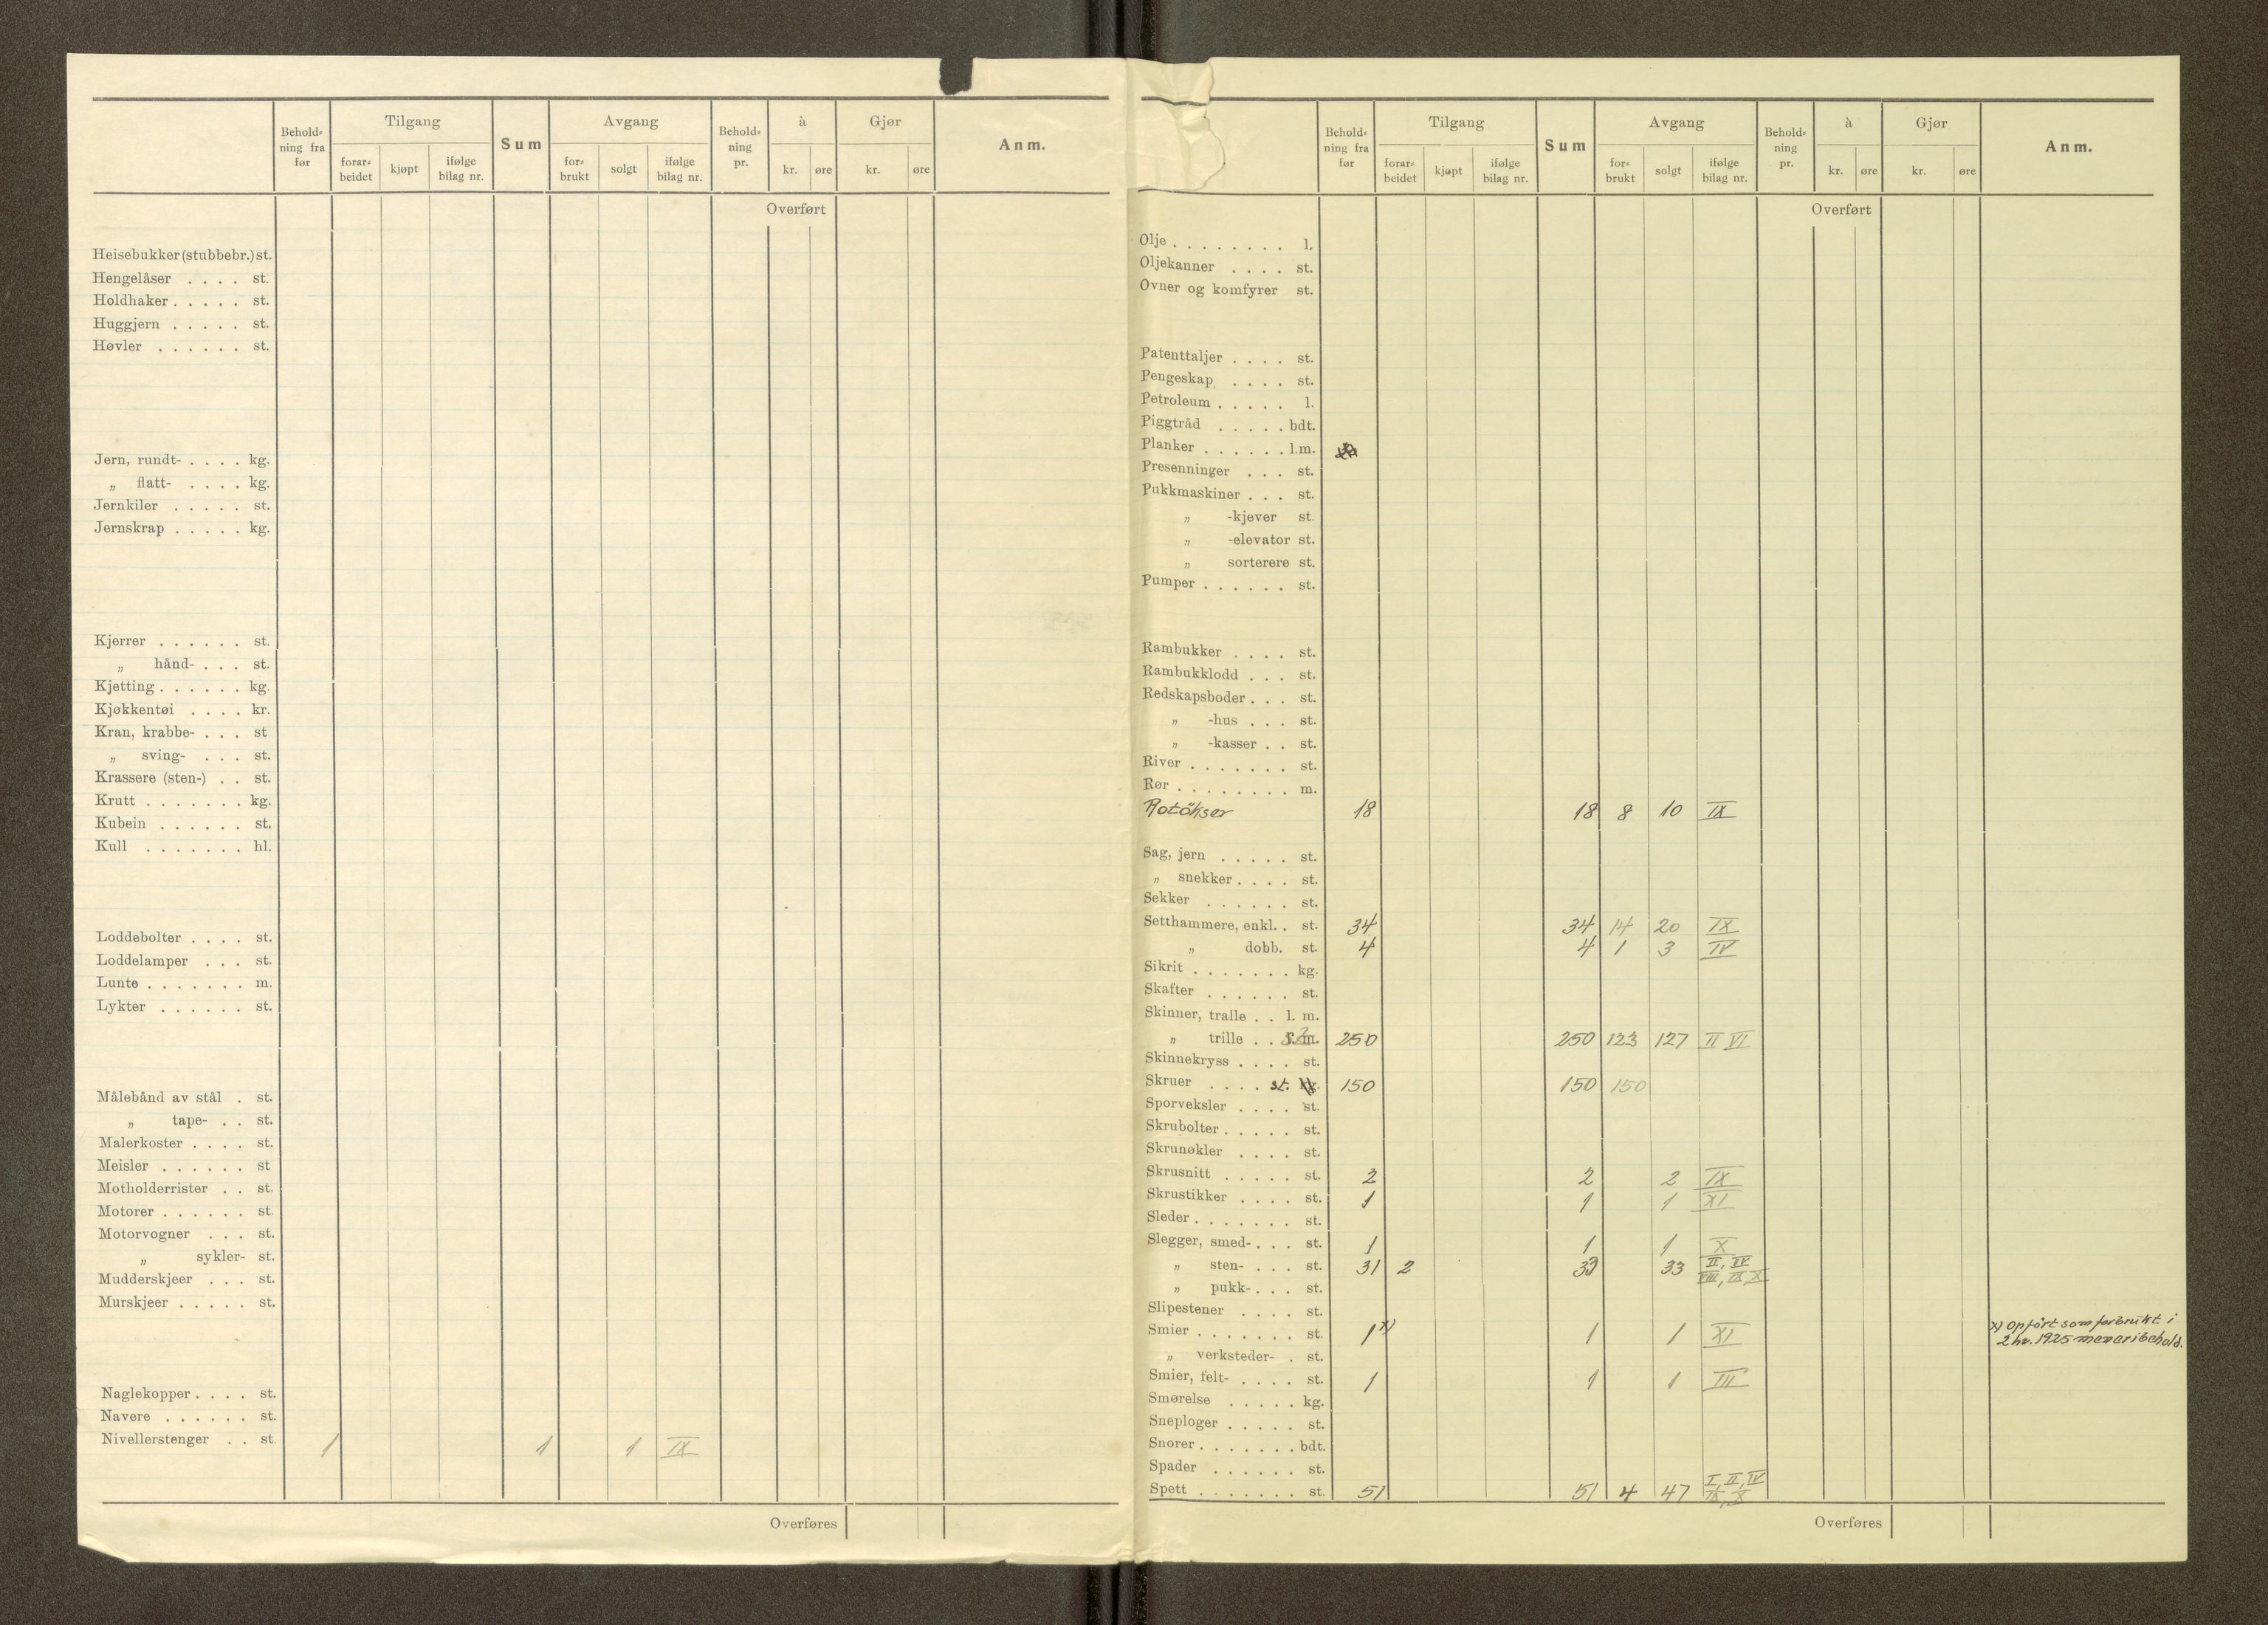 Behold-
ning fra
før
Tilgang
forar-
beidet
kjøpt
ifølge
bilag nr.
Sum
Avgang
for-
brukt
solgt
ifølge
bilag nr.
Behold-
ning
pr.
à
kr. øre
Gjør
kr. øre
Anm.
Overført
Heisebukker (stubbebr.) st.
Hengelåser . . . . st.
Holdhaker . . . . . st.
Huggjern . . . . . st.
Høvler . . . . . . st.
Jern, rundt- . . . . kg.
„ flatt- . . . . kg.
Jernkiler . . . . . st.
Jernskrap . . . . . kg.
Kjerrer . . . . . . st.
„ hånd- . . . st.
Kjetting . . . . . . kg.
Kjøkkentøi . . . . kr.
Kran, krabbe- . . . st
„ sving- . . . st.
Krassere (sten-) . . st.
Krutt . . . . . . . kg.
Kubein . . . . . . st.
Kull . . . . . . . hl.
Loddebolter . . . . st.
Loddelamper . . . st.
Lunte . . . . . . . m.
Lykter . . . . . . st.
Målebånd av stål . st.
„ tape- . . st.
Malerkoster . . . . st.
Meisler . . . . . . st
Motholderrister . . st.
Motorer . . . . . . st.
Motorvogner . . . st.
„ sykler- st.
Mudderskjeer . . . st.
Murskjeer . . . . . st.
Naglekopper . . . . st.
Navere . . . . . . st.
Nivellerstenger . . st 1 1 1 IX
Overføres
Behold-
ning fra
før
Tilgang
forar-
beidet
kjøpt
ifølge
bilag nr.
Sum
Avgang
for-
brukt
solgt
ifølge
bilag nr.
Behold-
ning
pr.
à
kr. øre
Gjør
kr. øre
Anm.
Overført
Olje . . . . . . . . l.
Oljekanner . . . . st.
Ovner og komfyrer st.
Patenttaljer . . . . st.
Pengeskap . . . . st.
Petroleum . . . . . l.
Piggtråd . . . . . bdt.
Planker . . . . . . l.m.
Presenninger . . . st.
Pukkmaskiner . . . st.
„ -kjever st.
„ -elevator st.
„ sorterere st.
Pumper . . . . . . st.
Rambukker . . . . st.
Rambukklodd . . . st.
Redskapsboder . . . st.
„ -hus . . . st.
„ -kasser . . st.
River . . . . . . . st.
Rør . . . . . . . . m.
Rotökser 18 18 8 10 IX
Sag, jern . . . . . st.
„ snekker . . . . st.
Sekker . . . . . . st.
Setthammere, enkl. . st. 34 34 14 20 IX
„ dobb. st. 4 4 1 3 IV
Sikrit . . . . . . . kg.
Skafter . . . . . . st.
Skinner, tralle . . l. m.
„ trille . . 250 250 123 127 II VI
Skinnekryss . . . . st.
Skruer . . . . st. kg. 150 150 150
Sporveksler . . . . st.
Skrubolter . . . . . st.
Skrunøkler . . . . st.
Skrusnitt . . . . . st. 2 2 2 IX
Skrustikker . . . . st. 1 1 1 XI
Sleder . . . . . . . st.
Slegger, smed- . . . st. 1 1 1 X
„ sten- . . . st. 31 2 33 33 II, IV
VIII, IX X
„ pukk- . . . st.
Slipestener . . . . st.
Smier . . . . . . . st. 1 x) 1 1 XI x) Opfört som forbrukt i
2 hv. 1925 men er i behold.
„ verksteder- . st.
Smier, felt- . . . . st. 1 1 1 III
Smørelse . . . . . kg.
Sneploger . . . . . st.
Snorer . . . . . . . bdt.
Spader . . . . . . st.
Spett . . . . . . . st. 51 51 4 47 I, II, IV
IX, X
Overføres